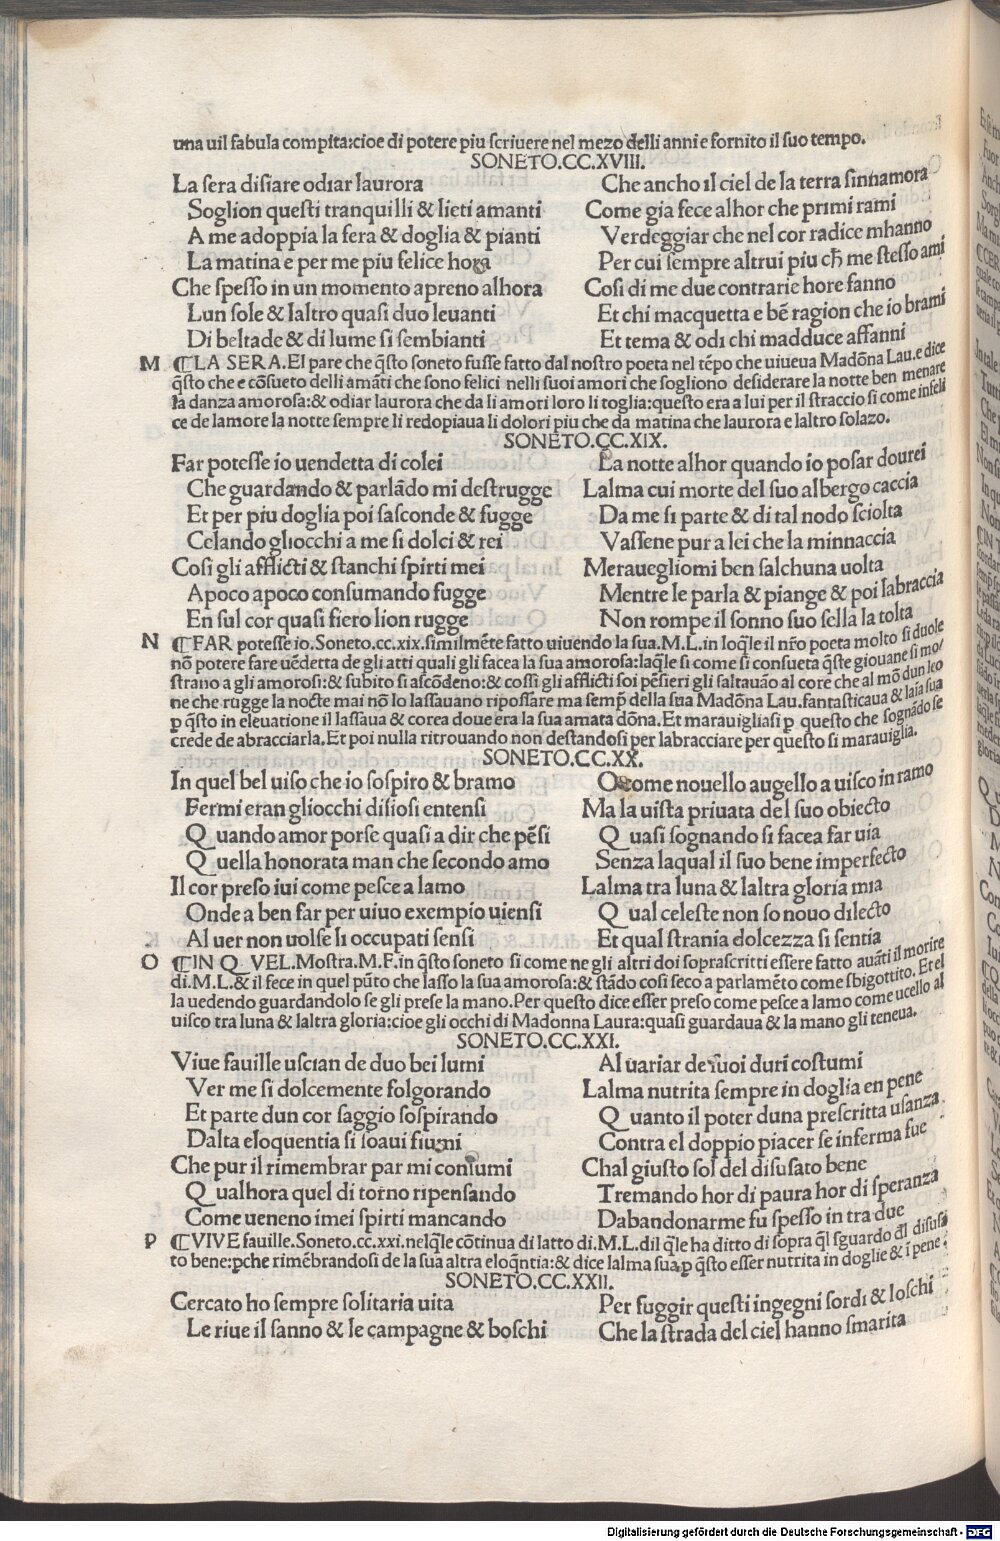 una uil fabula compita:cioe di potere piu scriuere nel mezo delli anni e fornito il suo tempo.
SONETO.CC.XVIII.
La sera disiare odiar laurora
Soglion questi tranquilli & lieti amanti
A me adoppia la sera & doglia & pianti
La matina e per me piu felice hora
Che spesso in un momento apreno alhora
Lun sole & laltro quasi duo leuanti
Di beltade & di lume si sembianti
Che ancho il ciel de la terra sinnamora
Come gia fece alhor che primi rami
Verdeggiar che nel cor radice mhanno
Per cui sempre altrui piu ch̄ me stesso ami
Cosi di me due contrarie hore fanno
Et chi macquetta e bē ragion che io brami
Et tema & odi chi madduce affanni
M ¶LA SERA.El pare che q̄sto soneto fusse fatto dal nostro poeta nel tēpo che uiueua Madōna Lau.e dice
q̄sto che e cōsueto delli amāti che sono felici nelli suoi amori che sogliono desiderare la notte ben menare
la danza amorosa:& odiar laurora che da li amori loro li toglia:questo era a lui per il straccio si come infeli
ce de lamore la notte sempre li redopiaua li dolori piu che da matina che laurora e laltro solazo.
SONETO.CC.XIX.
Far potesse io uendetta di colei
Che guardando & parlādo mi destrugge
Et per piu doglia poi sasconde & fugge
Celando gliocchi a me si dolci & rei
Cosi gli afflicti & stanchi spirti mei
Apoco apoco consumando sugge
En sul cor quasi fiero lion rugge
La notte alhor quando io posar dourei
Lalma cui morte del suo albergo caccia
Da me si parte & di tal nodo sciolta
Vassene pur a lei che la minnaccia
Merauegliomi ben salchuna uolta
Mentre le parla & piange & poi labraccia
Non rompe il sonno suo sella la tolta
N ¶FAR potesse io.Soneto.cc.xix.similmēte fatto uiuendo la sua.M.L.in loq̄le il nr̄o poeta molto si duole
nō potere fare uēdetta de gli atti quali gli facea la sua amorosa:laq̄le si come si consueta q̄ste giouane si mo/
strano a gli amorosi:& subito si ascōdeno:& cossi gli afflicti soi pēsieri gli saltauāo al core che al mō dun leo
ne che rugge la nocte mai nō lo lassauano ripossare ma semp̄ della sua Madōna Lau.fantasticaua & laīa sua
p q̄sto in eleuatione il lassaua & corea doue era la sua amata dōna.Et marauigliasi p questo che sognādo se
crede de abracciarla.Et poi nulla ritrouando non destandosi per labracciare per questo si marauiglia.
SONETO.CC.XX.
In quel bel uiso che io sospiro & bramo
Fermi eran gliocchi disiosi entensi
Quando amor porse quasi a dir che pēsi
Quella honorata man che secondo amo
Il cor preso iui come pesce a lamo
Onde a ben far per uiuo exempio uiensi
Al uer non uolse li occupati sensi
O come nouello augello a uisco in ramo
Ma la uista priuata del suo obiecto
Quasi sognando si facea far uia
Senza laqual il suo bene imperfecto
Lalma tra luna & laltra gloria mia
Qual celeste non so nouo dilecto
Et qual strania dolcezza si sentia
O ¶IN QVEL.Mostra.M.F.in q̄sto soneto si come ne gli altri doi soprascritti essere fatto auāti il morire
di.M.L.& il fece in quel pūto che lasso la sua amorosa:& stādo cosi seco a parlamēto come sbigottito. Et el
la uedendo guardandolo se gli prese la mano.Per questo dice esser preso come pesce a lamo come ucello al
uisco tra luna & laltra gloria:cioe gli occhi di Madonna Laura:quasi guardaua & la mano gli teneua.
SONETO.CC.XXI.
Viue fauille uscian de duo bei lumi
Ver me si dolcemente folgorando
Et parte dun cor saggio sospirando
Dalta eloquentia si soaui fiumi
Che pur il rimembrar par mi consumi
Qualhora quel di torno ripensando
Come ueneno i mei spirti mancando
Al uariar de suoi duri costumi
Lalma nutrita sempre in doglia en pene
Quanto il poter duna prescritta usanza
Contra el doppio piacer se inferma fue
Chal giusto sol del disusato bene
Tremando hor di paura hor di speranza
Dabandonarme fu spesso in tra due
P ¶VIVE fauille.Soneto.cc.xxi.nelq̄le cōtinua di latto di.M.L.dil q̄le ha ditto di sopra q̄l sguardo d̄l disusa
to bene:pche rimēbrandosi de la sua altra eloq̄ntia:& dice lalma sua p q̄sto esser nutrita in doglie & ī pene
SONETO.CC.XXII.
Cercato ho sempre solitaria uita
Le riue il sanno & le campagne & boschi
Per fuggir questi ingegni sordi & loschi
Che la strada del ciel hanno smarita
Digitalisierung gefördert durch die Deutsche Forschungsgemeinschaft - DFG